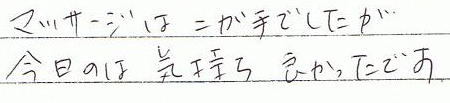 マッサージは ニが手でしたが
今日のは 気持ち 良かったです